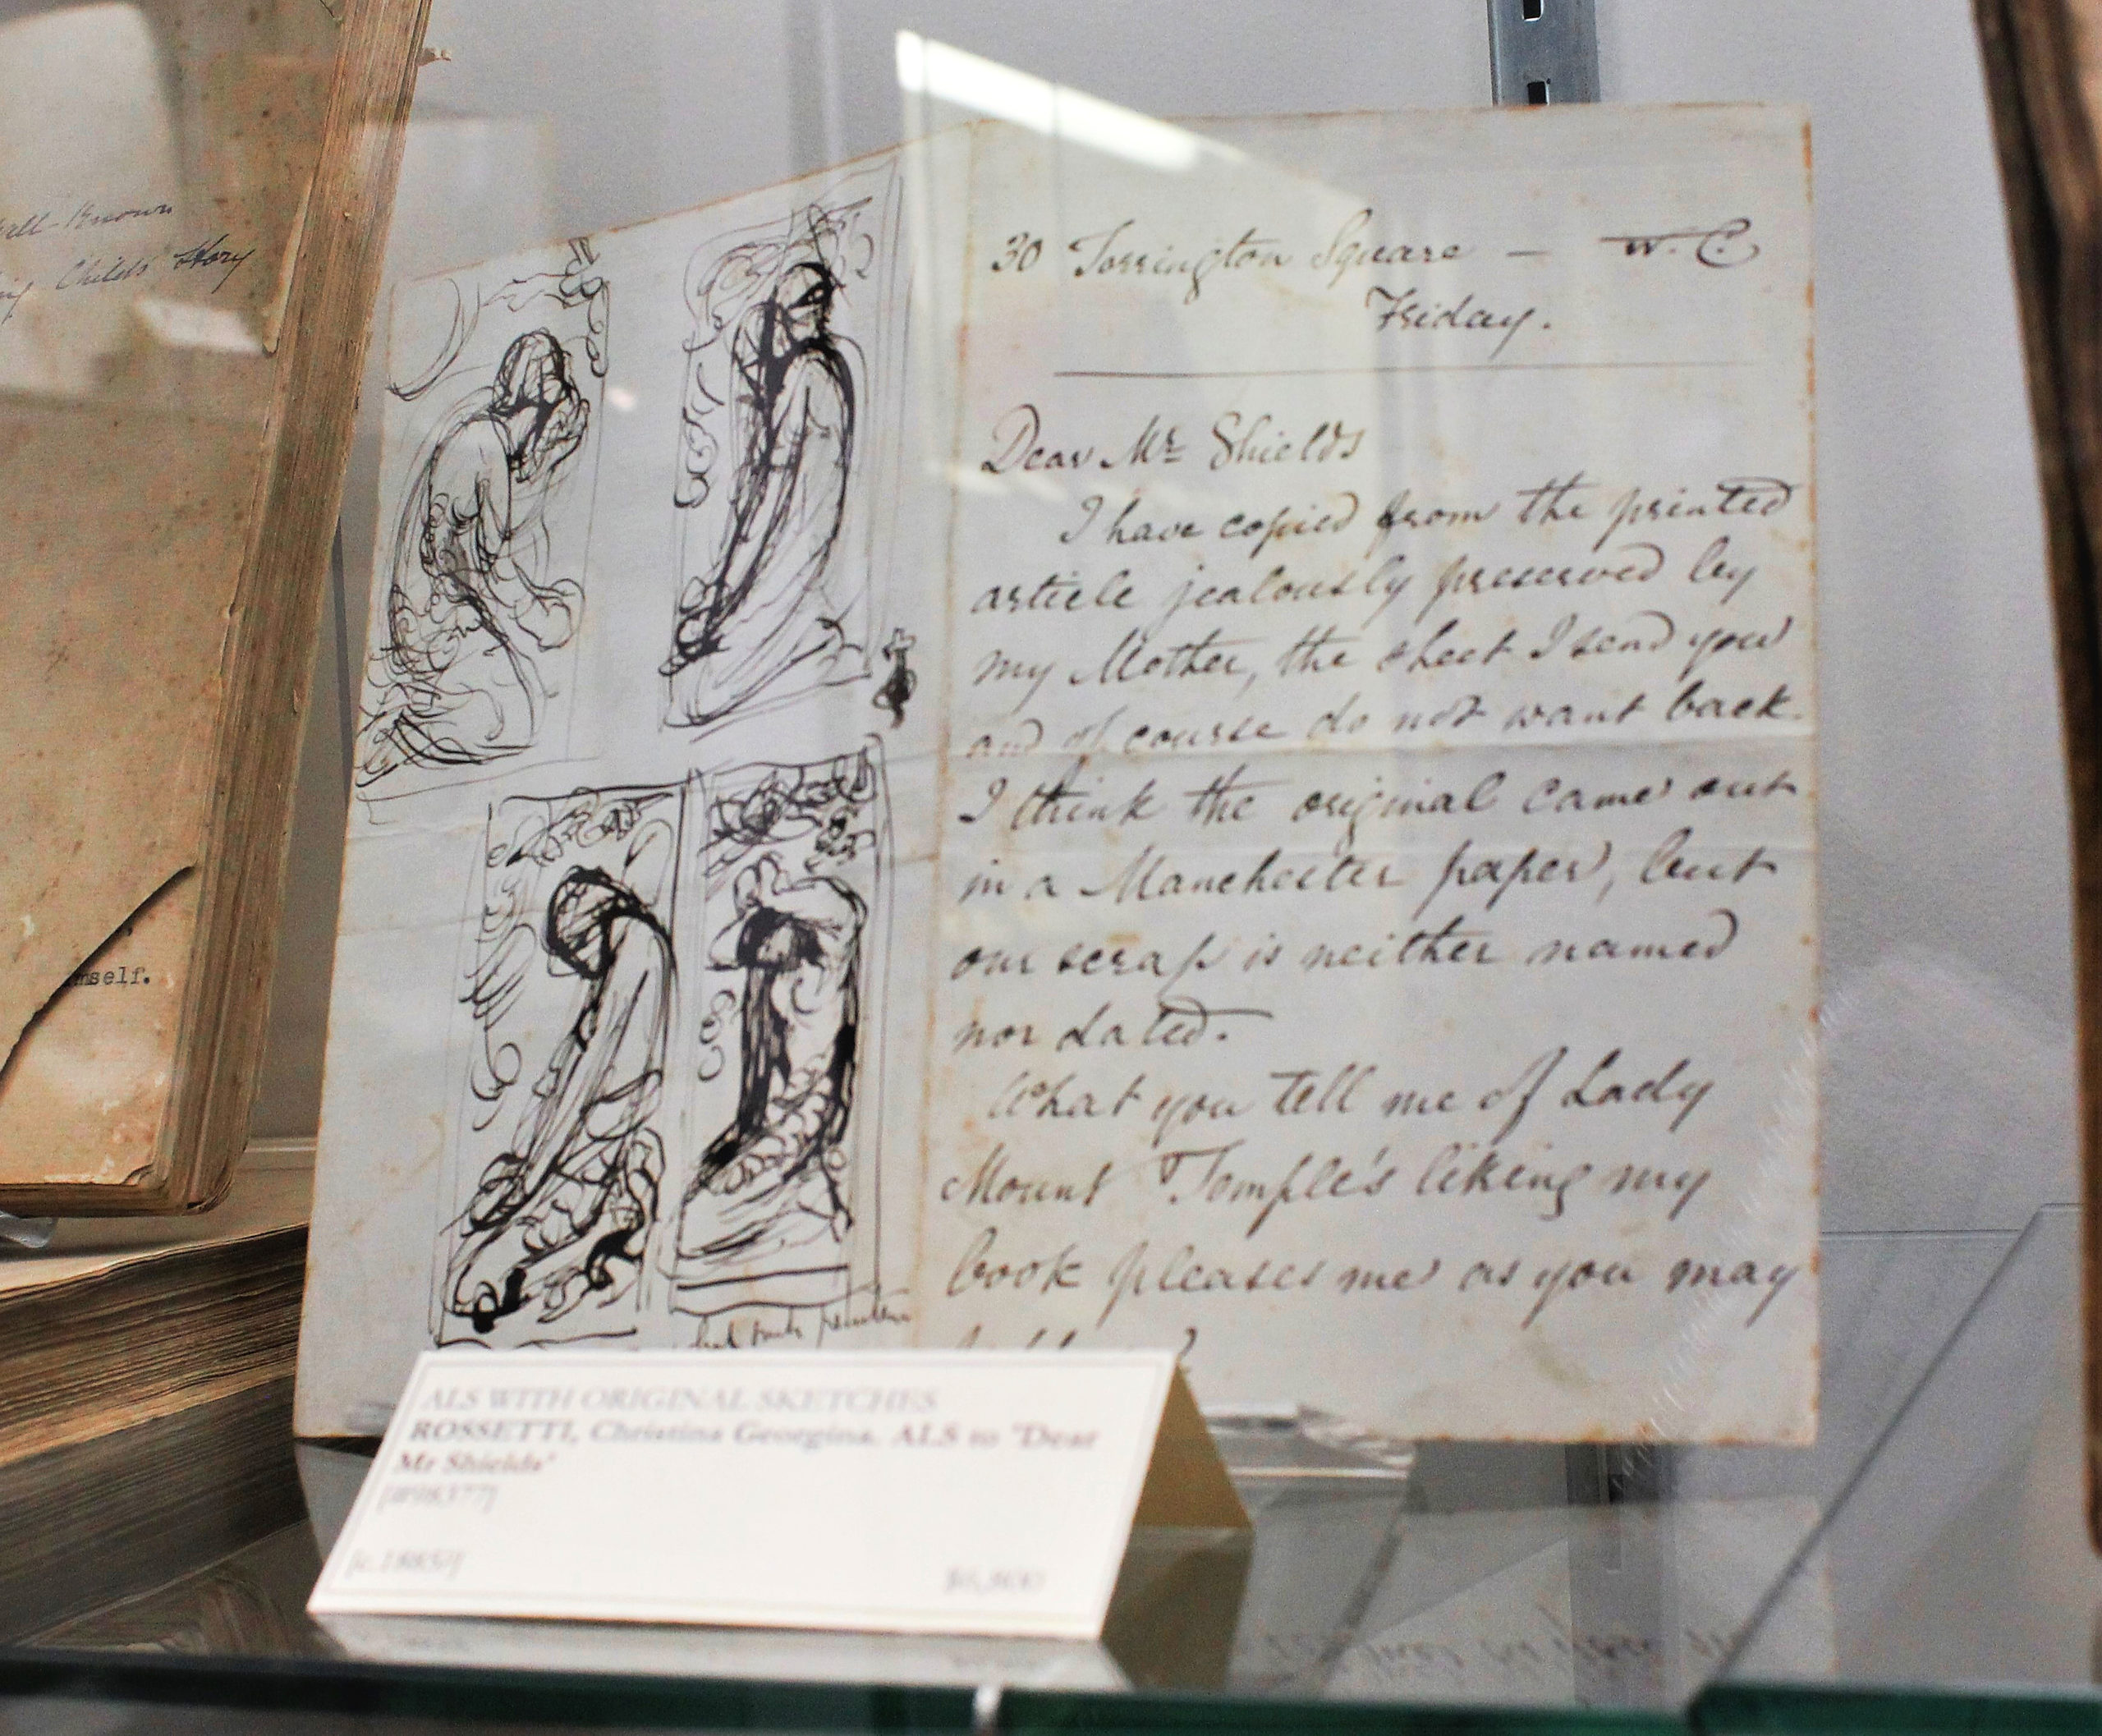 all-Known
Child's Story
mself.
30 Torrington Square — W.C.
Friday.
Dear Mr Shields
I have copied from the printed
article jealously preserved by
my Mother, the sheet I send you
and of course do not want back.
I think the original came out
in a Manchester paper, but
our scrap is neither named
nor dated.
What you tell me of Lady
Mount Temple's liking my
book pleases me as you may
ALS WITH ORIGINAL SKETCHES
ROSSETTI, Christina Georgina. ALS to 'Dear
Mr Shields'